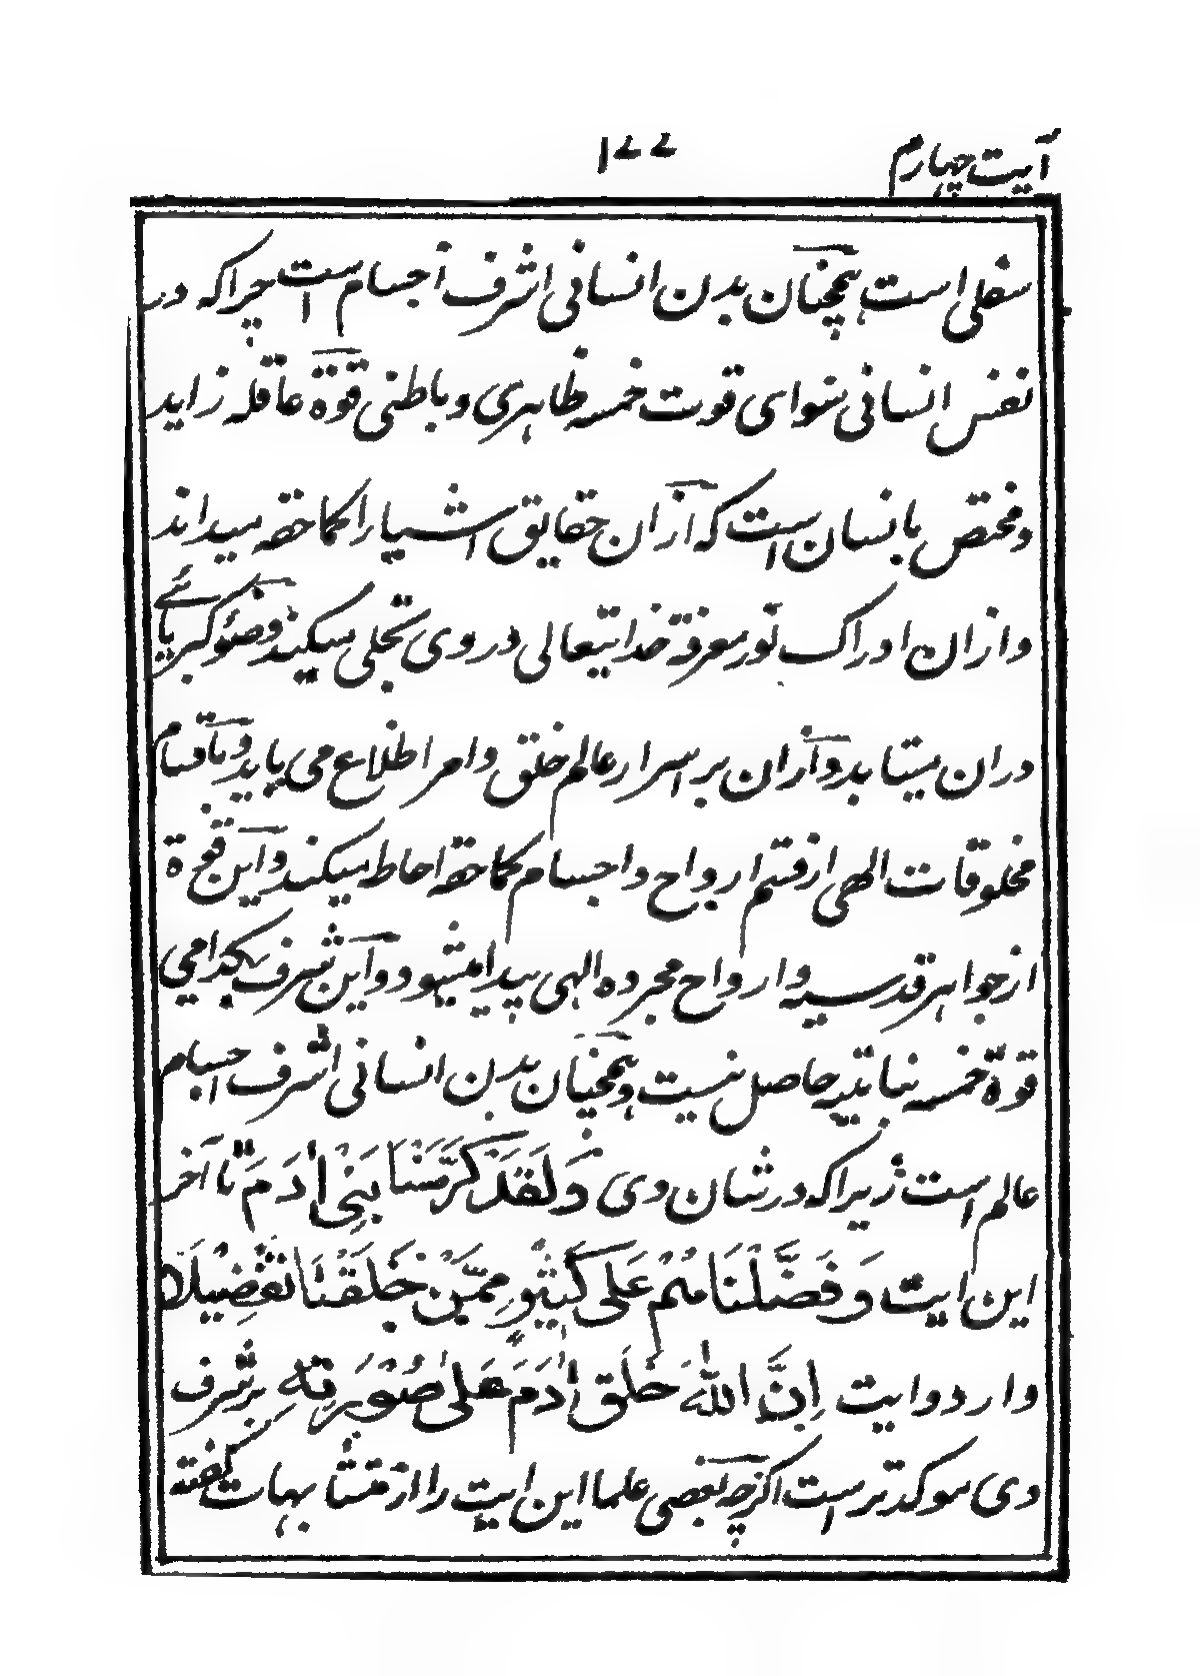 آیت چہارم ۱۷۷
سفلی است ہمچنان بدن انسانی اشرف اجسام است چراکہ در
نفس انسانی سوای قوت خمسہ ظاہری و باطنی قوۃ عاقلہ زاید
و مختص بانسان است کہ ازان حقایق اشیا را کماحقہ میداند
و ازان ادراک نور معرفۃ خدایتعالی در وی تجلی میکند و ضوء کبریائے
دران میتابد و ازان بر اسرار عالم خلق و امر اطلاع می یابد و باقسام
مخلوقات الہی از قسم ارواح و اجسام کماحقہ احاطہ میکند و این قوۃ
از جواہر قدسیہ و ارواح مجردہ الہی پیدا میشود و این شرف بکدامی
قوۃ خمسہ نباتیہ حاصل نیست و ہمچنان بدن انسانی اشرف اجسام
عالم است زیراکہ در شان وی وَلَقَدْ كَرَّمْنَا بَنِي اٰدَمَ تا آخر
این ایت وَفَضَّلْنَاهُمْ عَلٰى كَثِيْرٍ مِمَّنْ خَلَقْنَا تَفْضِيْلًا
وارد و ایت اِنَّ اللّٰهَ خَلَقَ اٰدَمَ عَلٰى صُوْرَتِهٖ بر شرف
وی موکدتر است اگرچہ بعضی علما این ایت را از متشابہات گفتہ